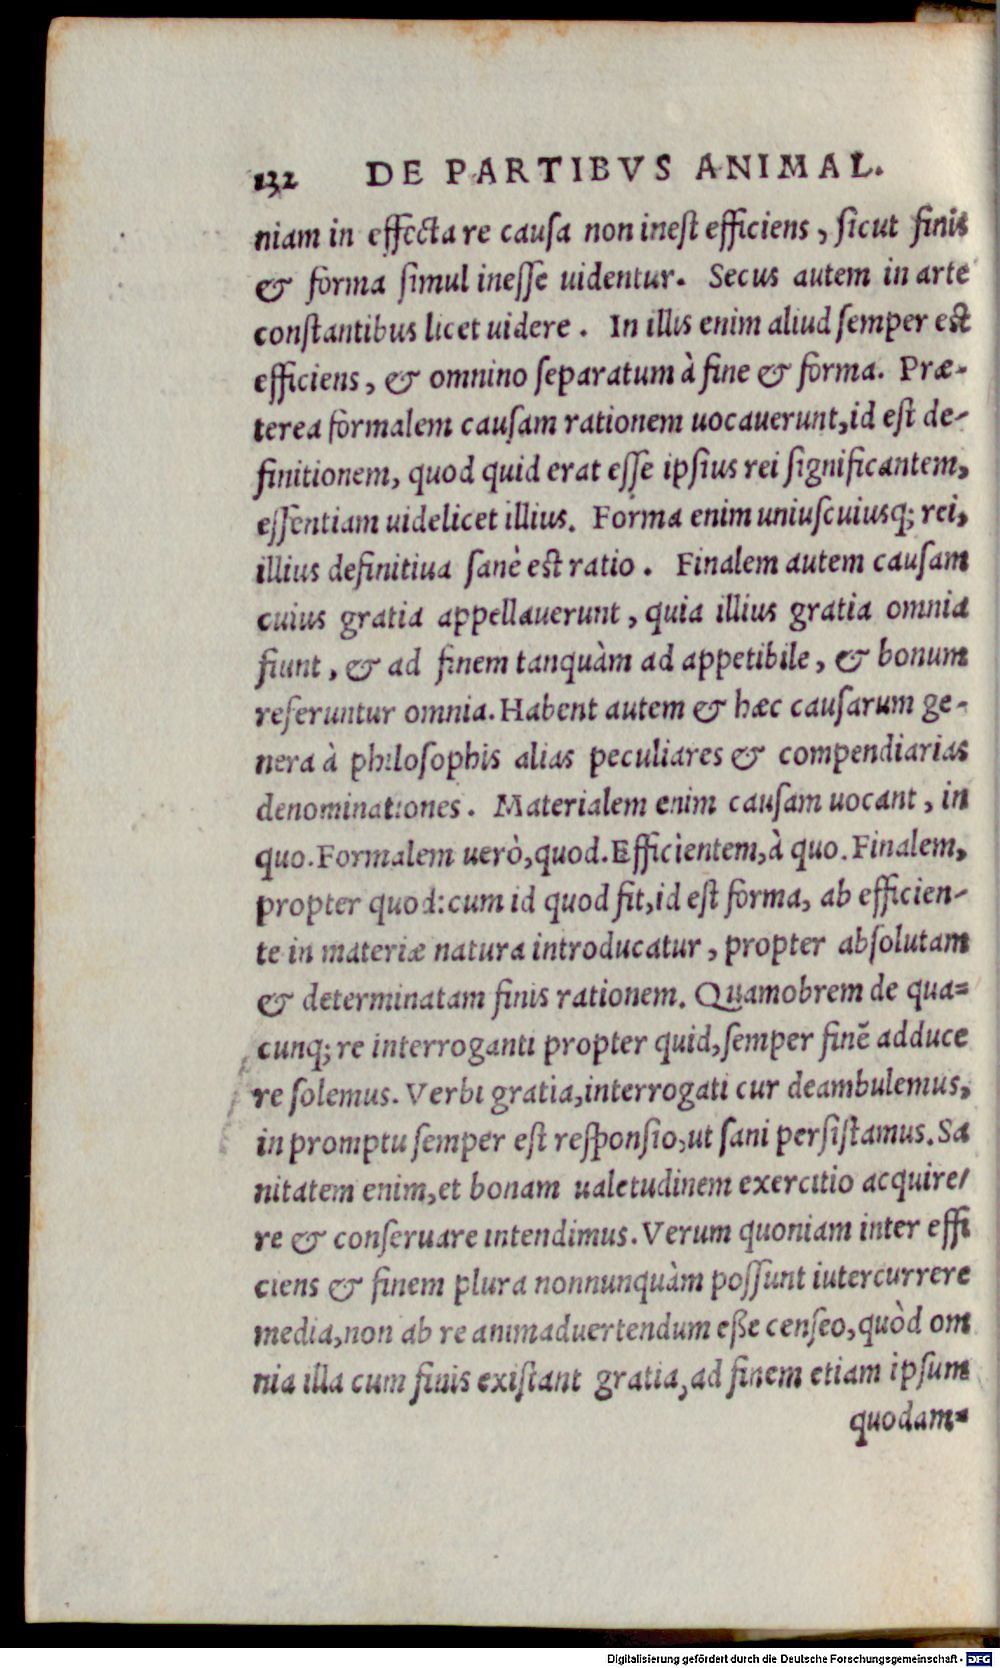 132 DE PARTIBVS ANIMAL.
niam in effecta re causa non inest efficiens, sicut finis
& forma simul inesse uidentur. Secus autem in arte
constantibus licet uidere. In illis enim aliud semper est
efficiens, & omnino separatum à fine & forma. Præ-
terea formalem causam rationem uocauerunt, id est de-
finitionem, quod quid erat esse ipsius rei significantem,
essentiam uidelicet illius. Forma enim uniuscuiusq; rei,
illius definitiua sanè est ratio. Finalem autem causam
cuius gratia appellauerunt, quia illius gratia omnia
fiunt, & ad finem tanquàm ad appetibile, & bonum
referuntur omnia. Habent autem & hæc causarum ge-
nera à philosophis alias peculiares & compendiarias
denominationes. Materialem enim causam uocant, in
quo. Formalem uerò, quod. Efficientem, à quo. Finalem,
propter quod: cum id quod fit, id est forma, ab efficien-
te in materiæ natura introducatur, propter absolutam
& determinatam finis rationem. Quamobrem de qua=
cunq; re interroganti propter quid, semper finẽ adduce
re solemus. Verbi gratia, interrogati cur deambulemus,
in promptu semper est responsio, ut sani persistamus. Sa
nitatem enim, et bonam ualetudinem exercitio acquire/
re & conseruare intendimus. Verum quoniam inter effi
ciens & finem plura nonnunquàm possunt iutercurrere
media, non ab re animaduertendum eße censeo, quòd om
nia illa cum finis existant gratia, ad finem etiam ipsum
quodam=
Digitalisierung gefördert durch die Deutsche Forschungsgemeinschaft - DFG